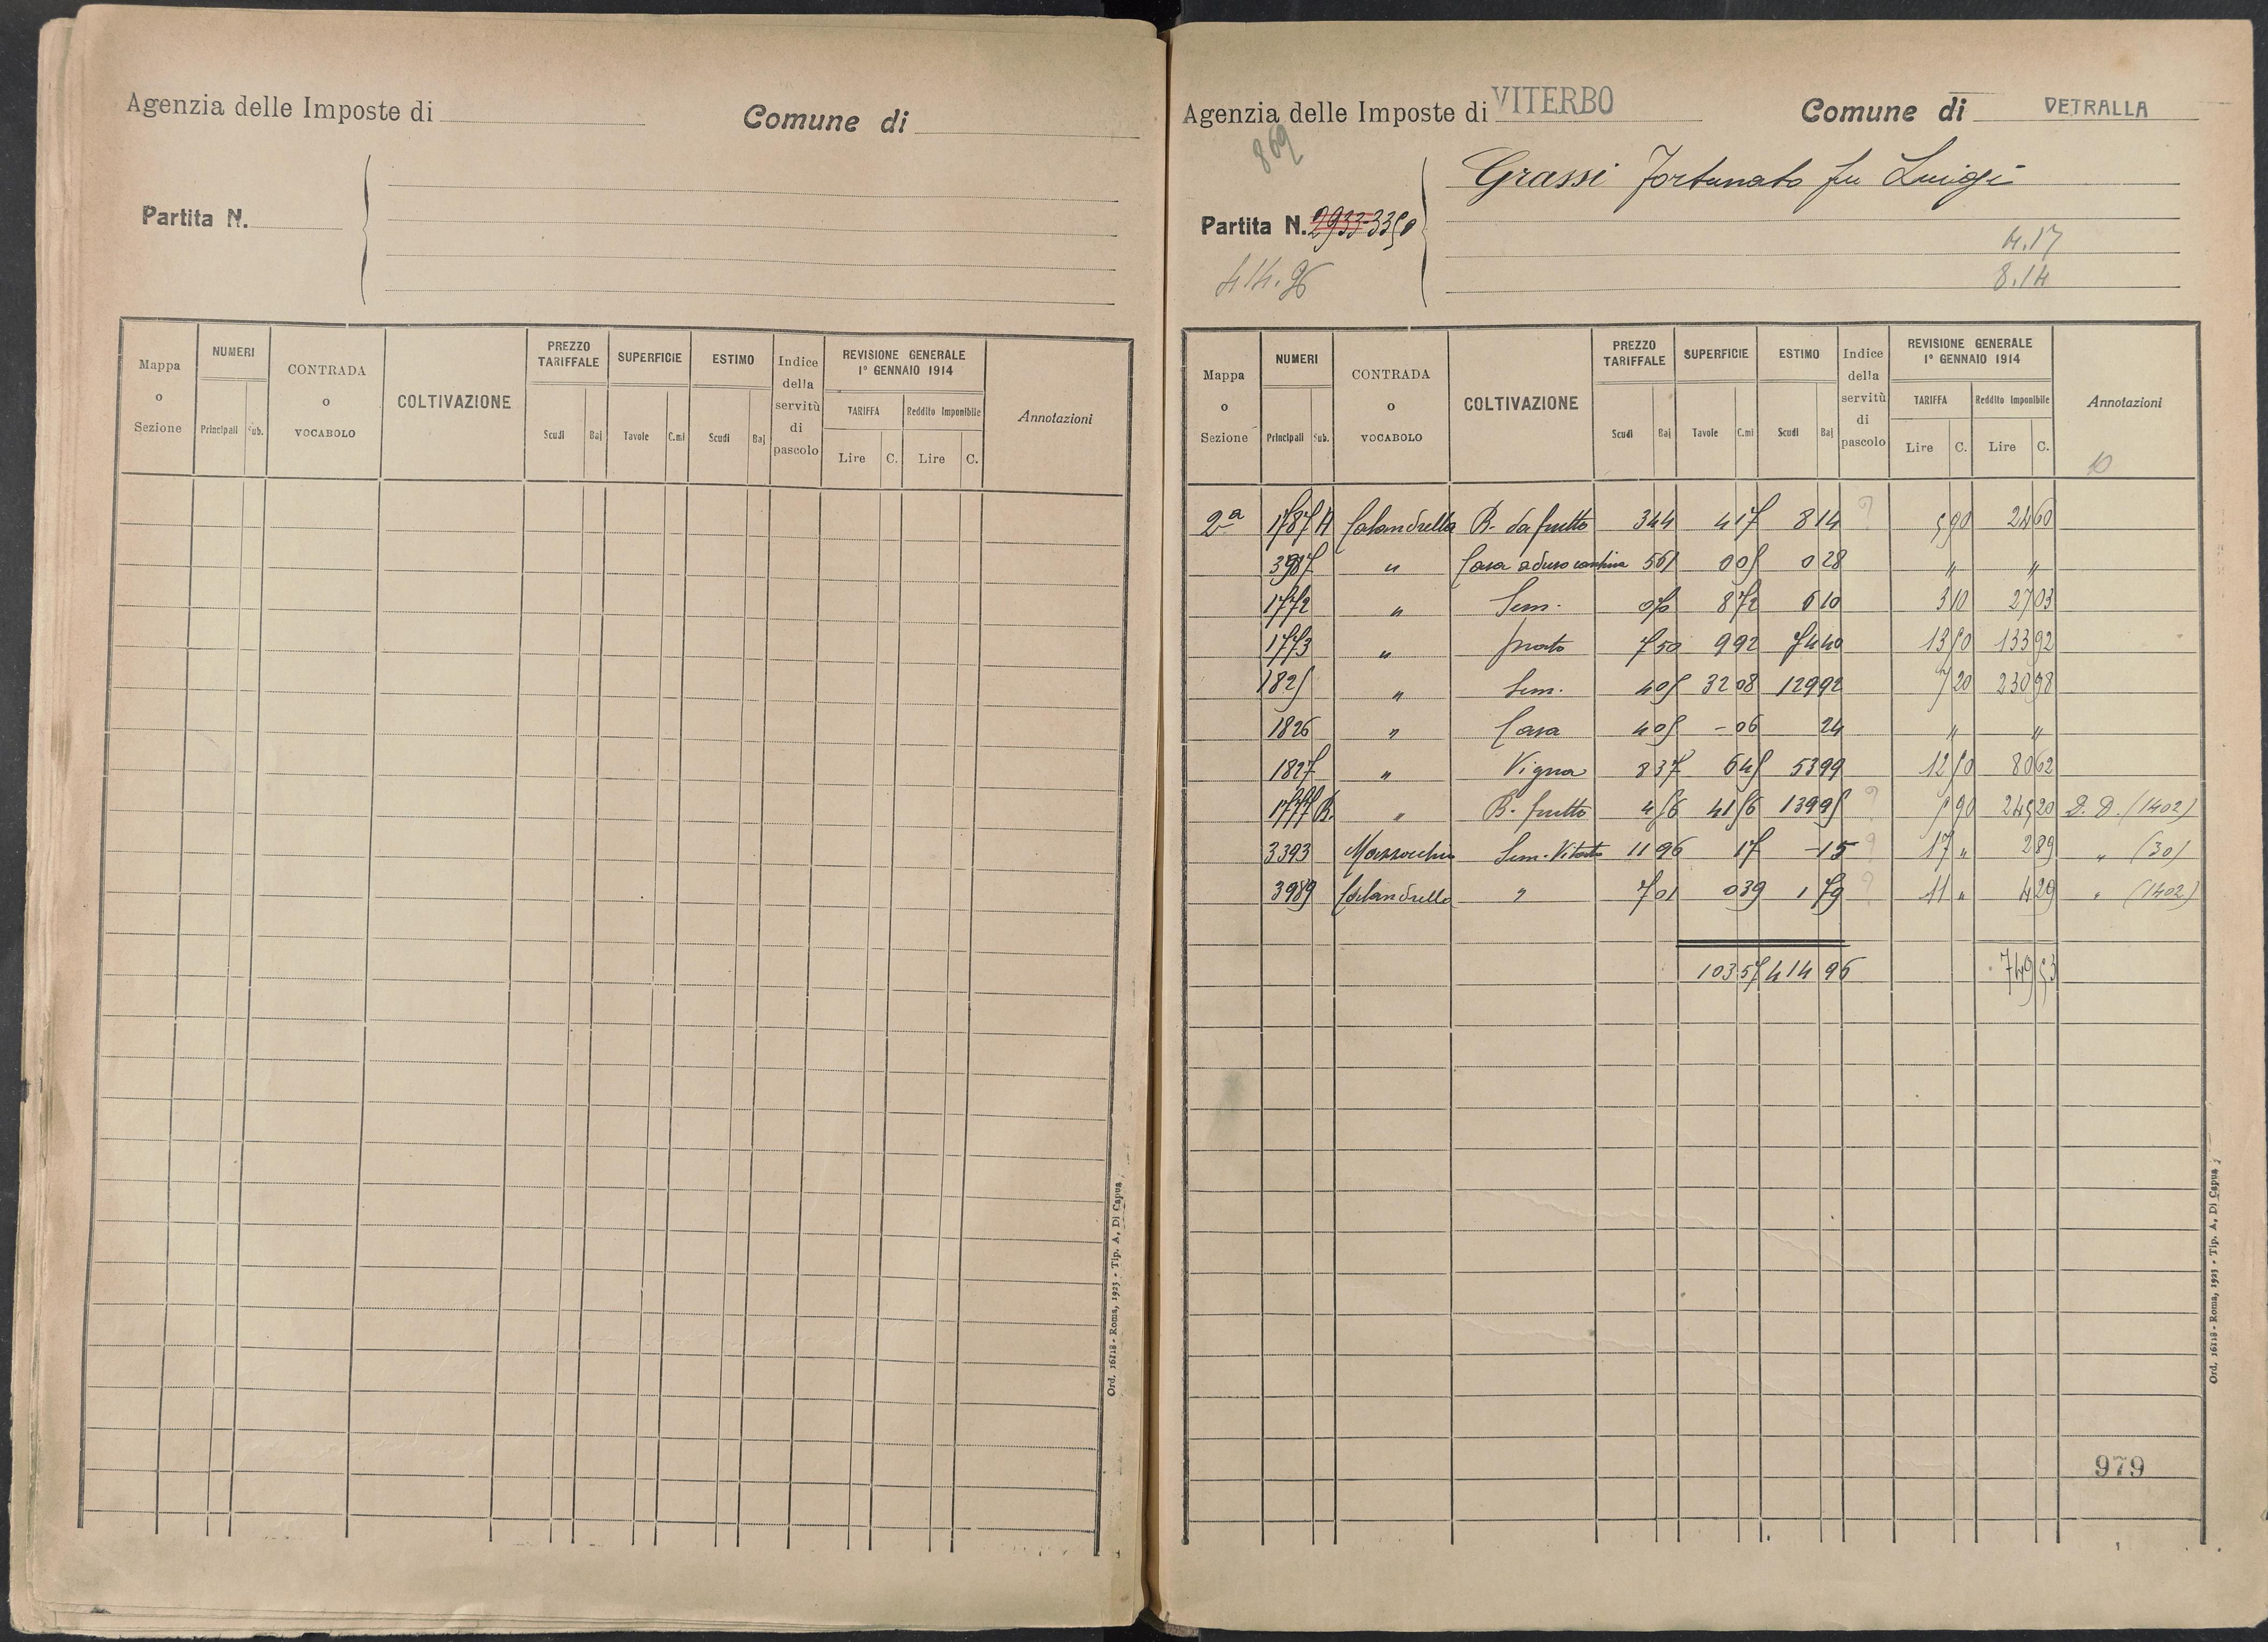 Agenzia delle Imposte di
Comune di
Partita N.
Mappa o Sezione | NUMERI Principali Sub. | CONTRADA o VOCABOLO | COLTIVAZIONE | PREZZO TARIFFALE Scudi Baj | SUPERFICIE Tavole C.mi | ESTIMO Scudi Baj | Indice della servitù di pascolo | REVISIONE GENERALE 1° GENNAIO 1914 TARIFFA Lire C. Reddito Imponibile Lire C. | Annotazioni
Ord. 16118 - Roma, 1923 - Tip. A. Di Capua
Agenzia delle Imposte di VITERBO
Comune di VETRALLA
869
Grassi Fortunato fu Luigi
Partita N. 2933 3350
4.17
414.96
8.14
Mappa o Sezione | NUMERI Principali Sub. | CONTRADA o VOCABOLO | COLTIVAZIONE | PREZZO TARIFFALE Scudi Baj | SUPERFICIE Tavole C.mi | ESTIMO Scudi Baj | Indice della servitù di pascolo | REVISIONE GENERALE 1° GENNAIO 1914 TARIFFA Lire C. Reddito Imponibile Lire C. | Annotazioni
10
2ª 1787 A Calandrella B. da frutto 3 44 4 17 8 14 ? 5 90 24 60
3987 " Casa ad uso cantina 5 61 0 05 0 28 " "
1772 " Sem. 0 70 8 72 6 10 3 10 27 03
1773 " prato 7 50 9 92 74 40 13 50 133 92
1825 " Sem. 4 05 32 08 129 92 7 20 230 98
1826 " Casa 4 05 - 06 24 " "
1827 " Vigna 8 37 6 45 53 99 12 50 80 62
1777 B. " B. frutto 4 56 41 56 139 95 ? 5 90 245 20 D. D. (1402)
3393 Mazzocchio Sem. Vitato 11 96 17 - 15 ? 17 " 2 89 " (30)
3989 Calandrella " 7 01 0 39 1 79 ? 11 " 4 29 " (1402)
103 57 414 96 749 53
979
Ord. 16118 - Roma, 1923 - Tip. A. Di Capua